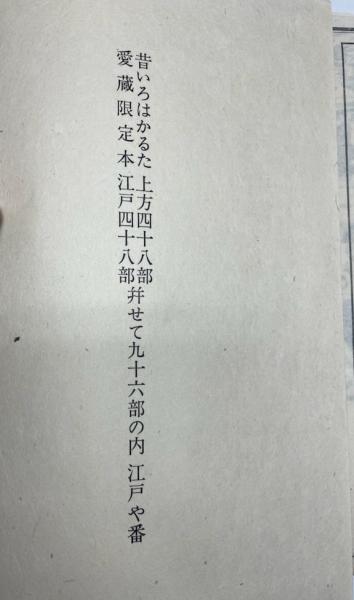 昔いろはかるた 上方四十八部
愛蔵限定本 江戸四十八部 幷せて九十六部の内 江戸や番